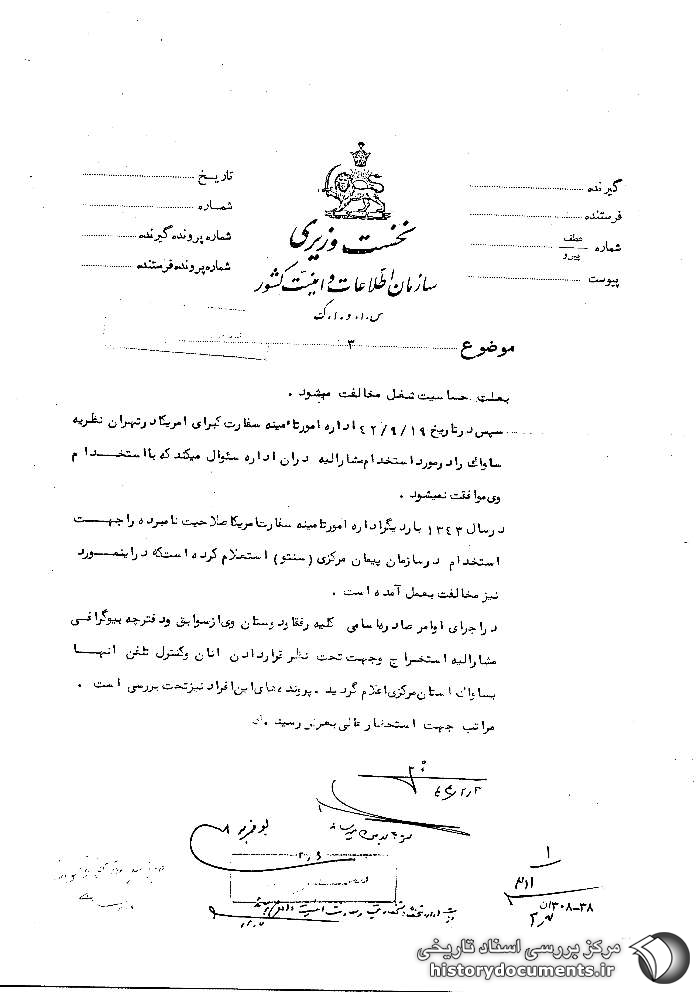 گیرنده
فرستنده
شماره عطف پیرو
پیوست
تاریخ
شماره
شماره پرونده گیرنده
شماره پرونده فرستنده
نخست وزیری
سازمان اطلاعات و امنیت کشور
س.ا.و.ا.ک
موضوع ۳
بعلت حساسیت شغل مخالفت میشود .
سپس در تاریخ ۴۲/۹/۱۹ اداره امور تامینه سفارت کبرای امریکا در تهران نظریه
ساواک را در مورد استخدام مشارالیه در ان اداره سئوال میکند که با استخدام
وی موافقت نمیشود .
در سال ۱۳۴۳ بار دیگر اداره امور تامینه سفارت امریکا صلاحیت نامبرده را جهت
استخدام در سازمان پیمان مرکزی (سنتو) استعلام کرده است که در اینمورد
نیز مخالفت بعمل آمده است .
در اجرای اوامر صادره اسامی کلیه رفقا و دوستان وی از سوابق و دفترچه بیوگرافی
مشارالیه استخراج و جهت تحت نظر قرار دادن انان و کنترل تلفن انها
بساواک استان مرکزی اعلام گردید . پرونده های این افراد نیز تحت بررسی است .
مراتب جهت استحضار عالی بعرض رسید .
۱
۳۰۸-۳۸
مرکز بررسی اسناد تاریخی
historydocuments.ir